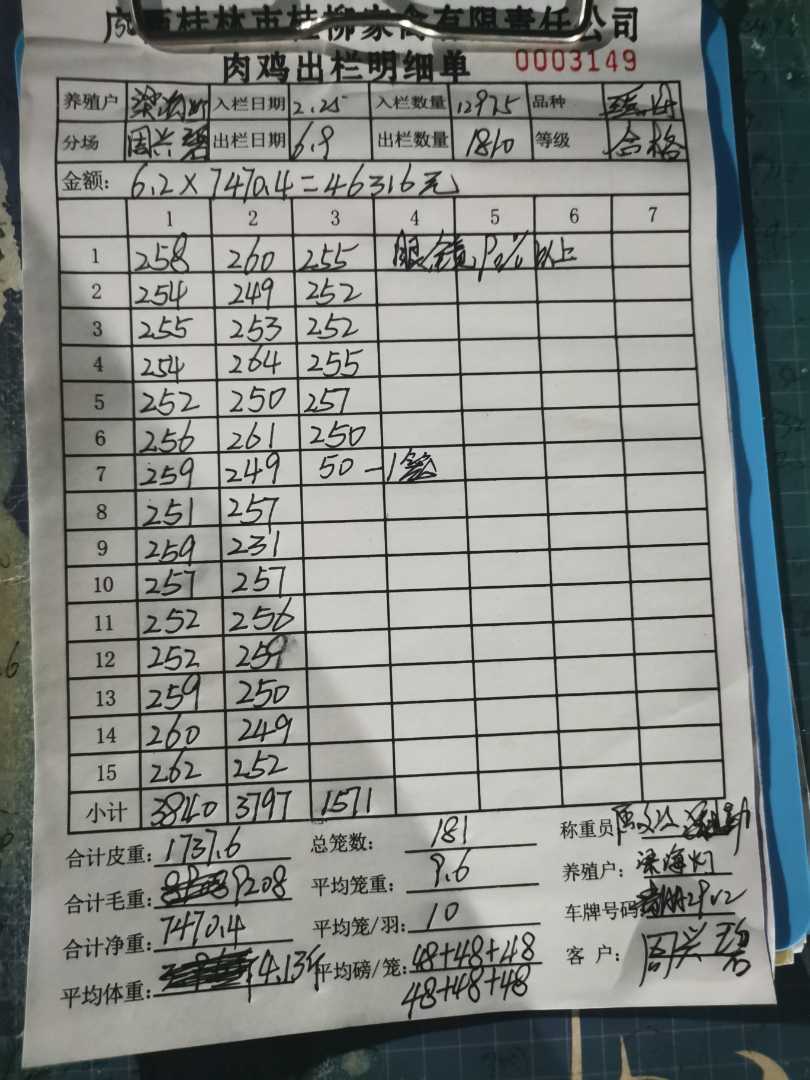 广西桂林市桂柳家禽有限责任公司
肉鸡出栏明细单 0003149
养殖户 梁海灯 入栏日期 2.25 入栏数量 12975 品种
分场 周兴碧 出栏日期 6.9 出栏数量 1810 等级 合格
金额: 6.2×7470.4=46316元
1 2 3 4 5 6 7
1 258 260 255 眼镜,90%以上
2 254 249 252
3 255 253 252
4 254 264 255
5 252 250 257
6 256 261 250
7 259 249 50-1笼
8 251 257
9 259 231
10 257 257
11 252 256
12 252 259
13 259 250
14 260 249
15 262 252
小计 3840 3797 1571
合计皮重: 1737.6 总笼数: 181 称重员
合计毛重: 9208 平均笼重: 9.6 养殖户: 梁海灯
合计净重: 7470.4 平均笼/羽: 10 车牌号码
平均体重: 4.13斤 平均磅/笼: 48+48+48 客户: 周兴碧
48+48+48